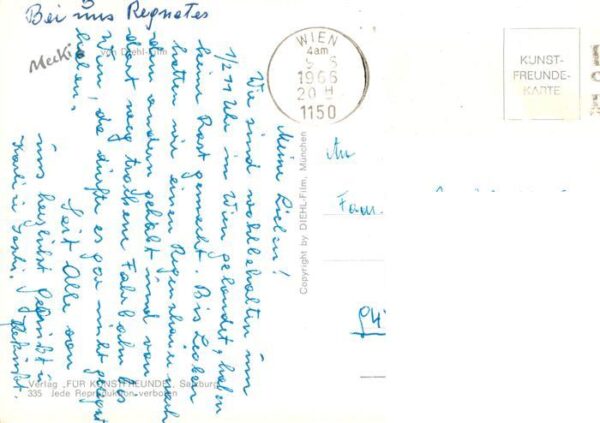 Bei uns Regnete es
Mecki
von Diehl-Film
Meine Lieben!
Wir sind wohlbehalten um
1/2 11 Uhr in Wien gelandet, haben
keine Rast gemacht. Bis Leoben
hatten wir einen Regenschauer nach
dem andern gehabt und von
dort weg trockene Fahrbahn bis
Wien, da dürfte es gar nicht geregnet
haben.
Seit Alle von
uns herzlichst gegrüßt u.
geküßt.
WIEN
4am
1966
20 H
1150
KUNST-
FREUNDE-
KARTE
An
Fam.
Copyright by DIEHL-Film, München
Verlag „FÜR KUNSTFREUNDE", Salzburg
335 Jede Reproduktion verboten